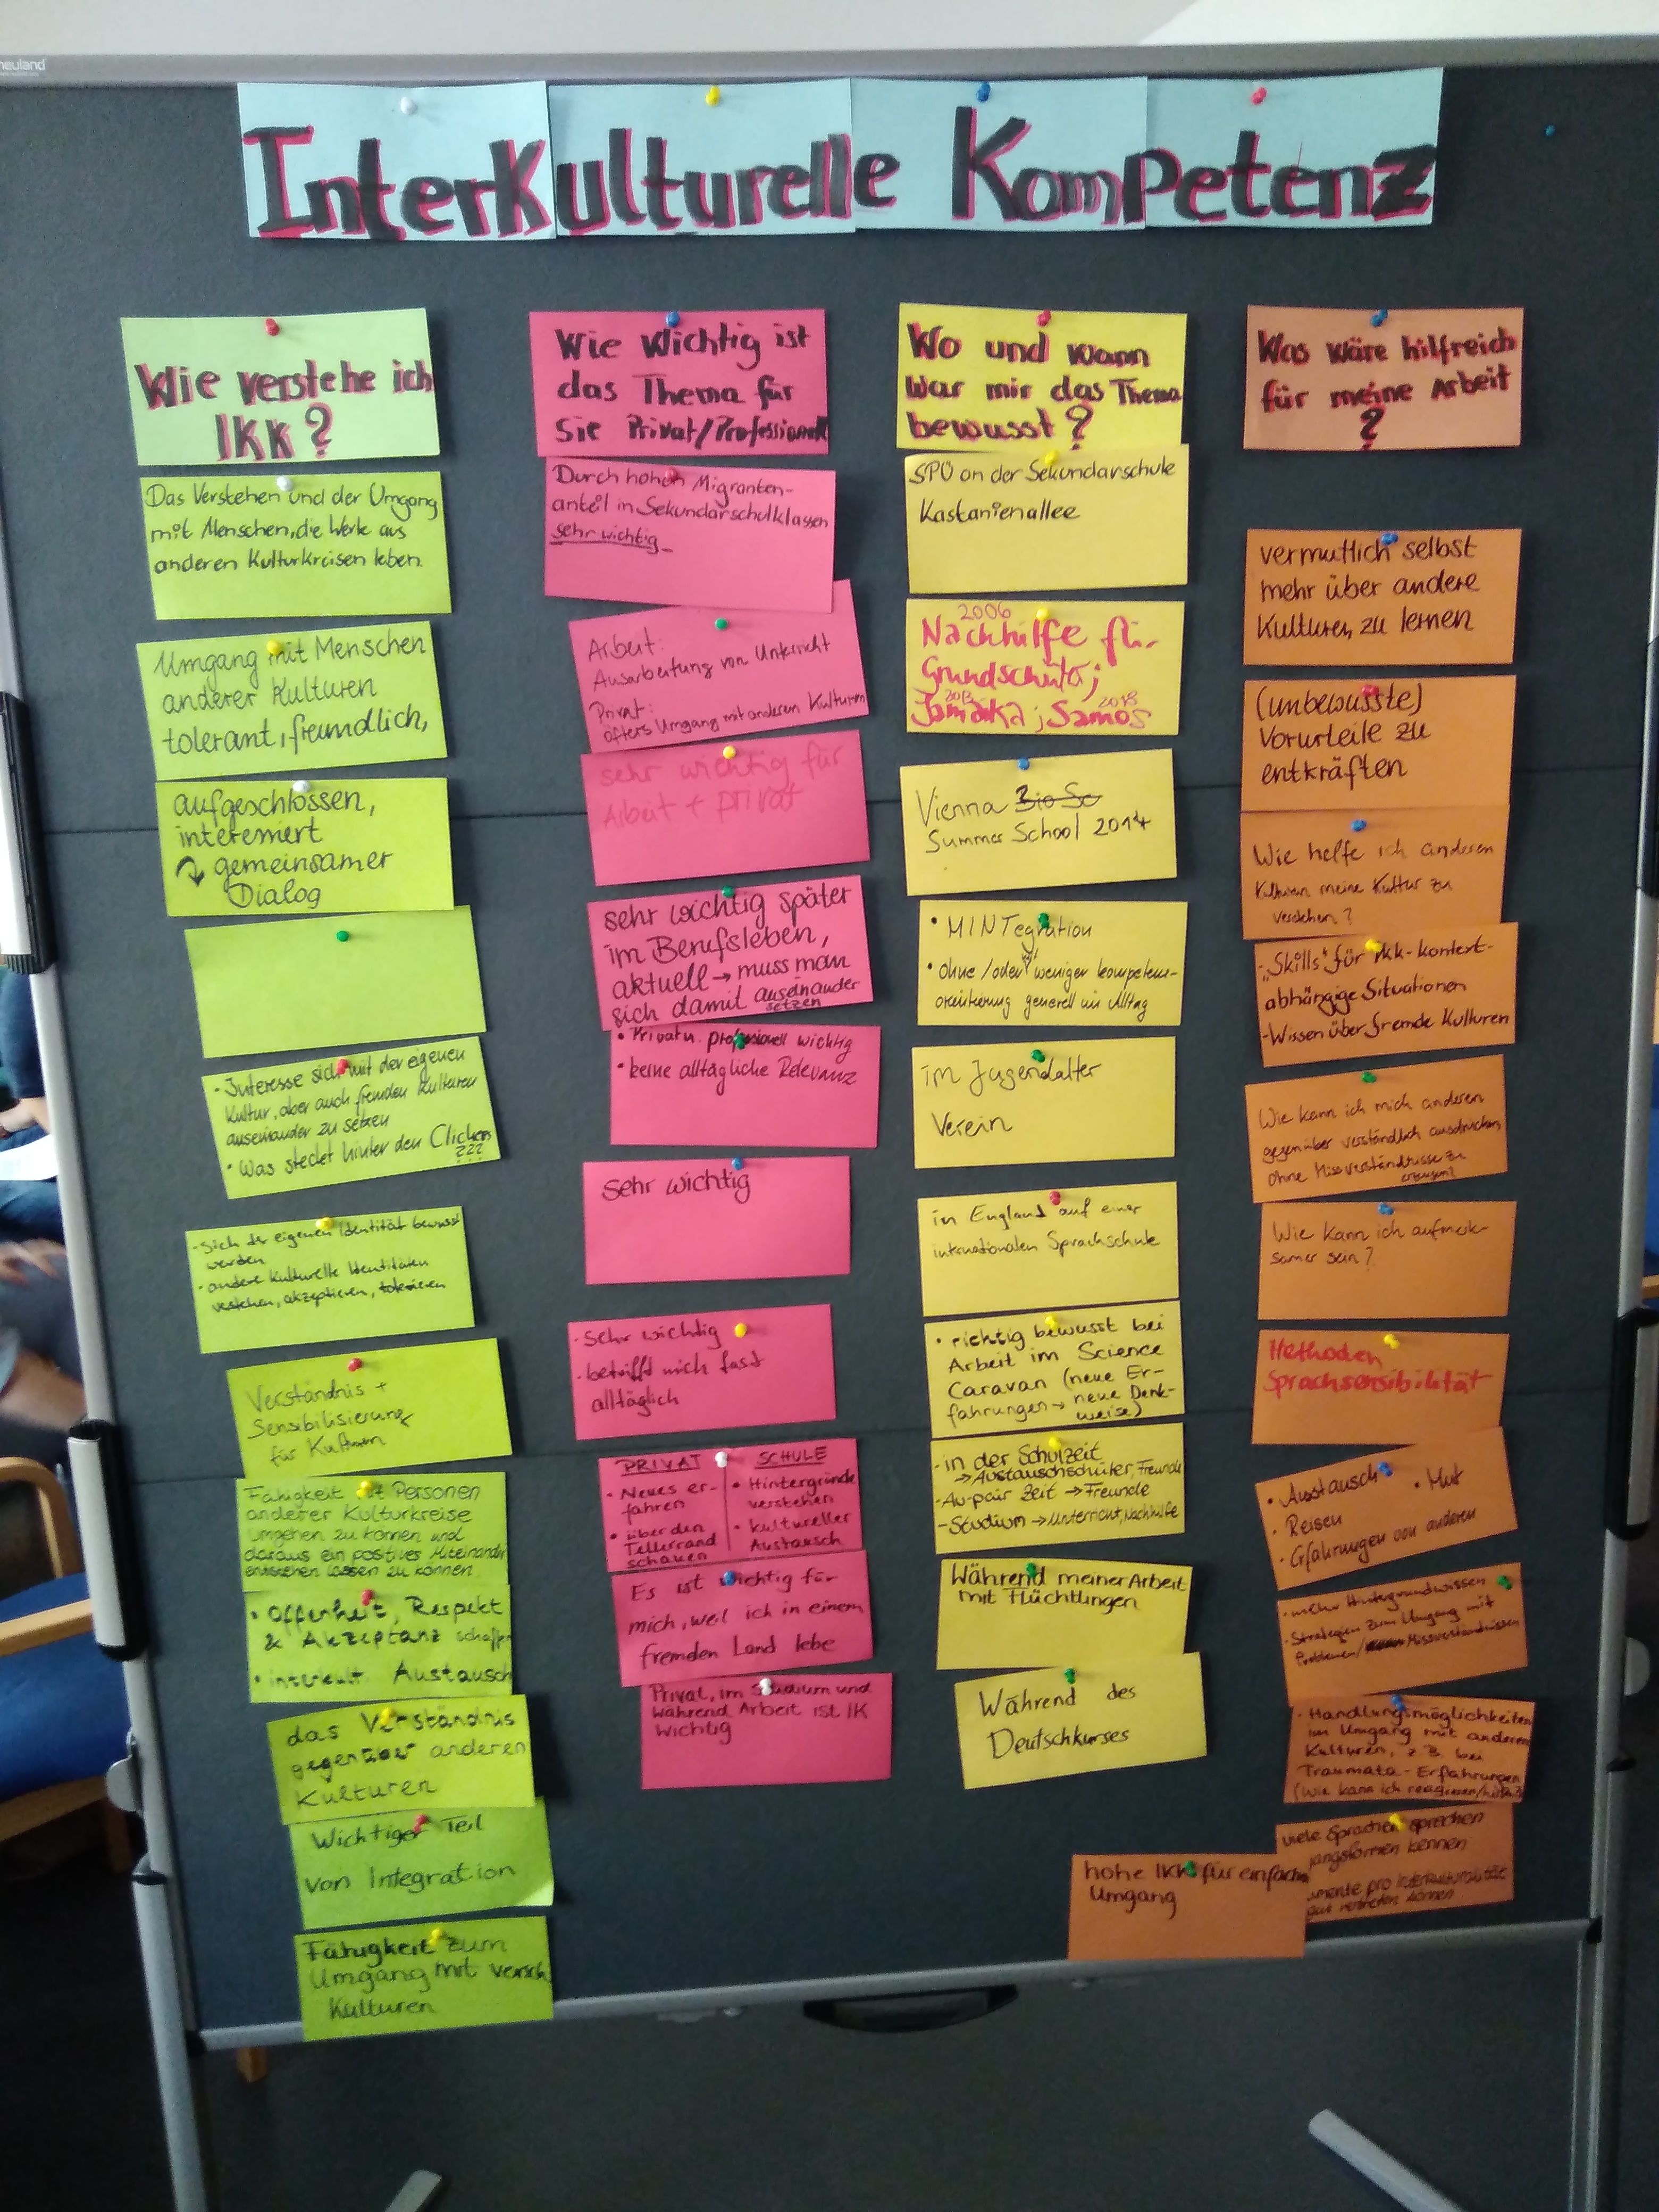 neuland
Interkulturelle Kompetenz
Wie verstehe ich
IKK?
Das Verstehen und der Umgang
mit Menschen, die Werte aus
anderen Kulturkreisen leben.
Umgang mit Menschen
anderer Kulturen
tolerant, freundlich,
aufgeschlossen,
interessiert
gemeinsamer
Dialog
• Interesse sich mit der eigenen
Kultur, aber auch fremden Kulturen
auseinander zu setzen
• Was steckt hinter den
???
- sich der eigenen Identität bewusst
werden
- andere kulturelle Identitäten
verstehen, akzeptieren, tolerieren
Verständnis +
Sensibilisierung
für Kulturen
Fähigkeit mit Personen
anderer Kulturkreise
umgehen zu können und
daraus ein positives Miteinander
entstehen lassen zu können
• Offenheit, Respekt
& Akzeptanz schaffen
• interkult. Austausch
das Verständnis
gegenüber anderen
Kulturen
Wichtiger Teil
von Integration
Fähigkeit zum
Umgang mit versch.
Kulturen
Wie wichtig ist
das Thema für
Sie Privat/Professionell
Durch hohen Migranten-
anteil in Sekundarschulklassen
sehr wichtig
Arbeit:
Ausarbeitung von Unterricht
Privat:
öfters Umgang mit anderen Kulturen
sehr wichtig für
Arbeit + privat
sehr wichtig später
im Berufsleben,
aktuell → muss man
sich damit auseinander
setzen
• Privat u. professionell wichtig
• keine alltägliche Relevanz
sehr wichtig
- sehr wichtig
- betrifft mich fast
alltäglich
PRIVAT SCHULE
• Neues er-
fahren
• über den
Tellerrand
schauen
• Hintergründe
verstehen
• kultureller
Austausch
Es ist wichtig für
mich, weil ich in einem
fremden Land lebe
Privat, im Studium und
während Arbeit ist IK
wichtig
Wo und wann
war mir das Thema
bewusst?
SPÜ an der Sekundarschule
Kastanienallee
2006
Nachhilfe für
Grundschüler;
2013 2018
Jamaika; Samos
Vienna
Summer School 2014
• MINTegration
• ohne /oder weniger kompetenz-
orientierung generell im Alltag
im Jugendalter
Verein
in England auf einer
internationalen Sprachschule
• richtig bewusst bei
Arbeit im Science
Caravan (neue Er-
fahrungen → neue Denk-
weise)
- in der Schulzeit
→ Austauschschüler, Freunde
- Au-pair Zeit → Freunde
- Studium → Unterricht, Nachhilfe
Während meiner Arbeit
mit Flüchtlingen
Während des
Deutschkurses
Was wäre hilfreich
für meine Arbeit
?
vermutlich selbst
mehr über andere
Kulturen zu lernen
(unbewusste)
Vorurteile zu
entkräften
Wie helfe ich anderen
Kulturen meine Kultur zu
verstehen?
- „Skills" für ikk-kontext-
abhängige Situationen
- Wissen über fremde Kulturen
Wie kann ich mich anderen
gegenüber verständlich ausdrücken
ohne Missverständnisse zu
erzeugen?
Wie kann ich aufmerk-
samer sein?
Methoden
Sprachsensibilität
• Austausch • Mut
• Reisen
• Erfahrungen von anderen
- mehr Hintergrundwissen
- Strategien zum Umgang mit
Problemen/ Missverständnissen
- Handlungsmöglichkeiten
im Umgang mit anderen
Kulturen, z.B. bei
Traumata-Erfahrungen
(Wie kann ich reagieren/
viele Sprachen sprechen
gangsformen kennen
umente pro Interkulturalität
gut vertreten können
hohe IKK für einfachen
Umgang